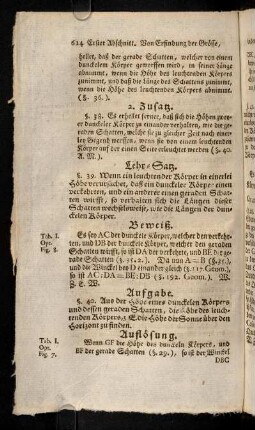 614 Erster Abschnitt. Von Erfindung der Grösse,
hellet, daß der gerade Schatten, welcher von einem
dunckelen Körper geworffen wird, in seiner Länge
abnimmt, wenn die Höhe des leuchtenden Körpers
zunimmt, und daß die Länge des Schattens zunimmt,
wenn die Höhe des leuchtenden Körpers abnimmt.
(§. 36.).
2. Zusatz.
§. 38. Es erhellet ferner, daß sich die Höhen zweyer
dunckeler Körper zu einander verhalten, wie die geraden
Schatten, welche sie zu gleicher Zeit nach einerley
Gegend werffen, wenn sie von einem leuchtenden
Körper auf der einen Seite erleuchtet werden (§. 40.
A. M.).
Lehr-Satz.
§. 39. Wenn ein leuchtender Körper in einerley
Höhe verursachet, daß ein dunckeler Körper einen
verkehrten, und ein anderer einen geraden Schatten
wirfft, so verhalten sich die Längen dieser
Schatten wechselsweise, wie die Längen der dunckelen
Körper.
Beweiß.
Tab. I.
Opt.
Fig. 8.
Es sey AC der dunckele Körper, welcher den verkehrten,
und DB der dunckele Körper, welcher den geraden
Schatten wirfft, so ist DA der verkehrte, und BE der gerade
Schatten (§. 31. 2.). Da nun A = B (§. 71.),
und die Winckel bey D einander gleich (§. 117. Geom.),
so ist AC : DA = BE : DB (§. 192. Geom.). W.
Z. E. W.
Aufgabe.
§. 40. Aus der Höhe eines dunckelen Körpers
und dessen geraden Schatten, die Höhe des leuchtenden
Körpers, z. E. die Höhe der Sonne über den
Horizont zu finden.
Auflösung.
Tab. I.
Opt.
Fig. 7.
Wenn GF die Höhe des dunckeln Körpers, und
BF der gerade Schatten (§. 29.), so ist der Winckel
DBC